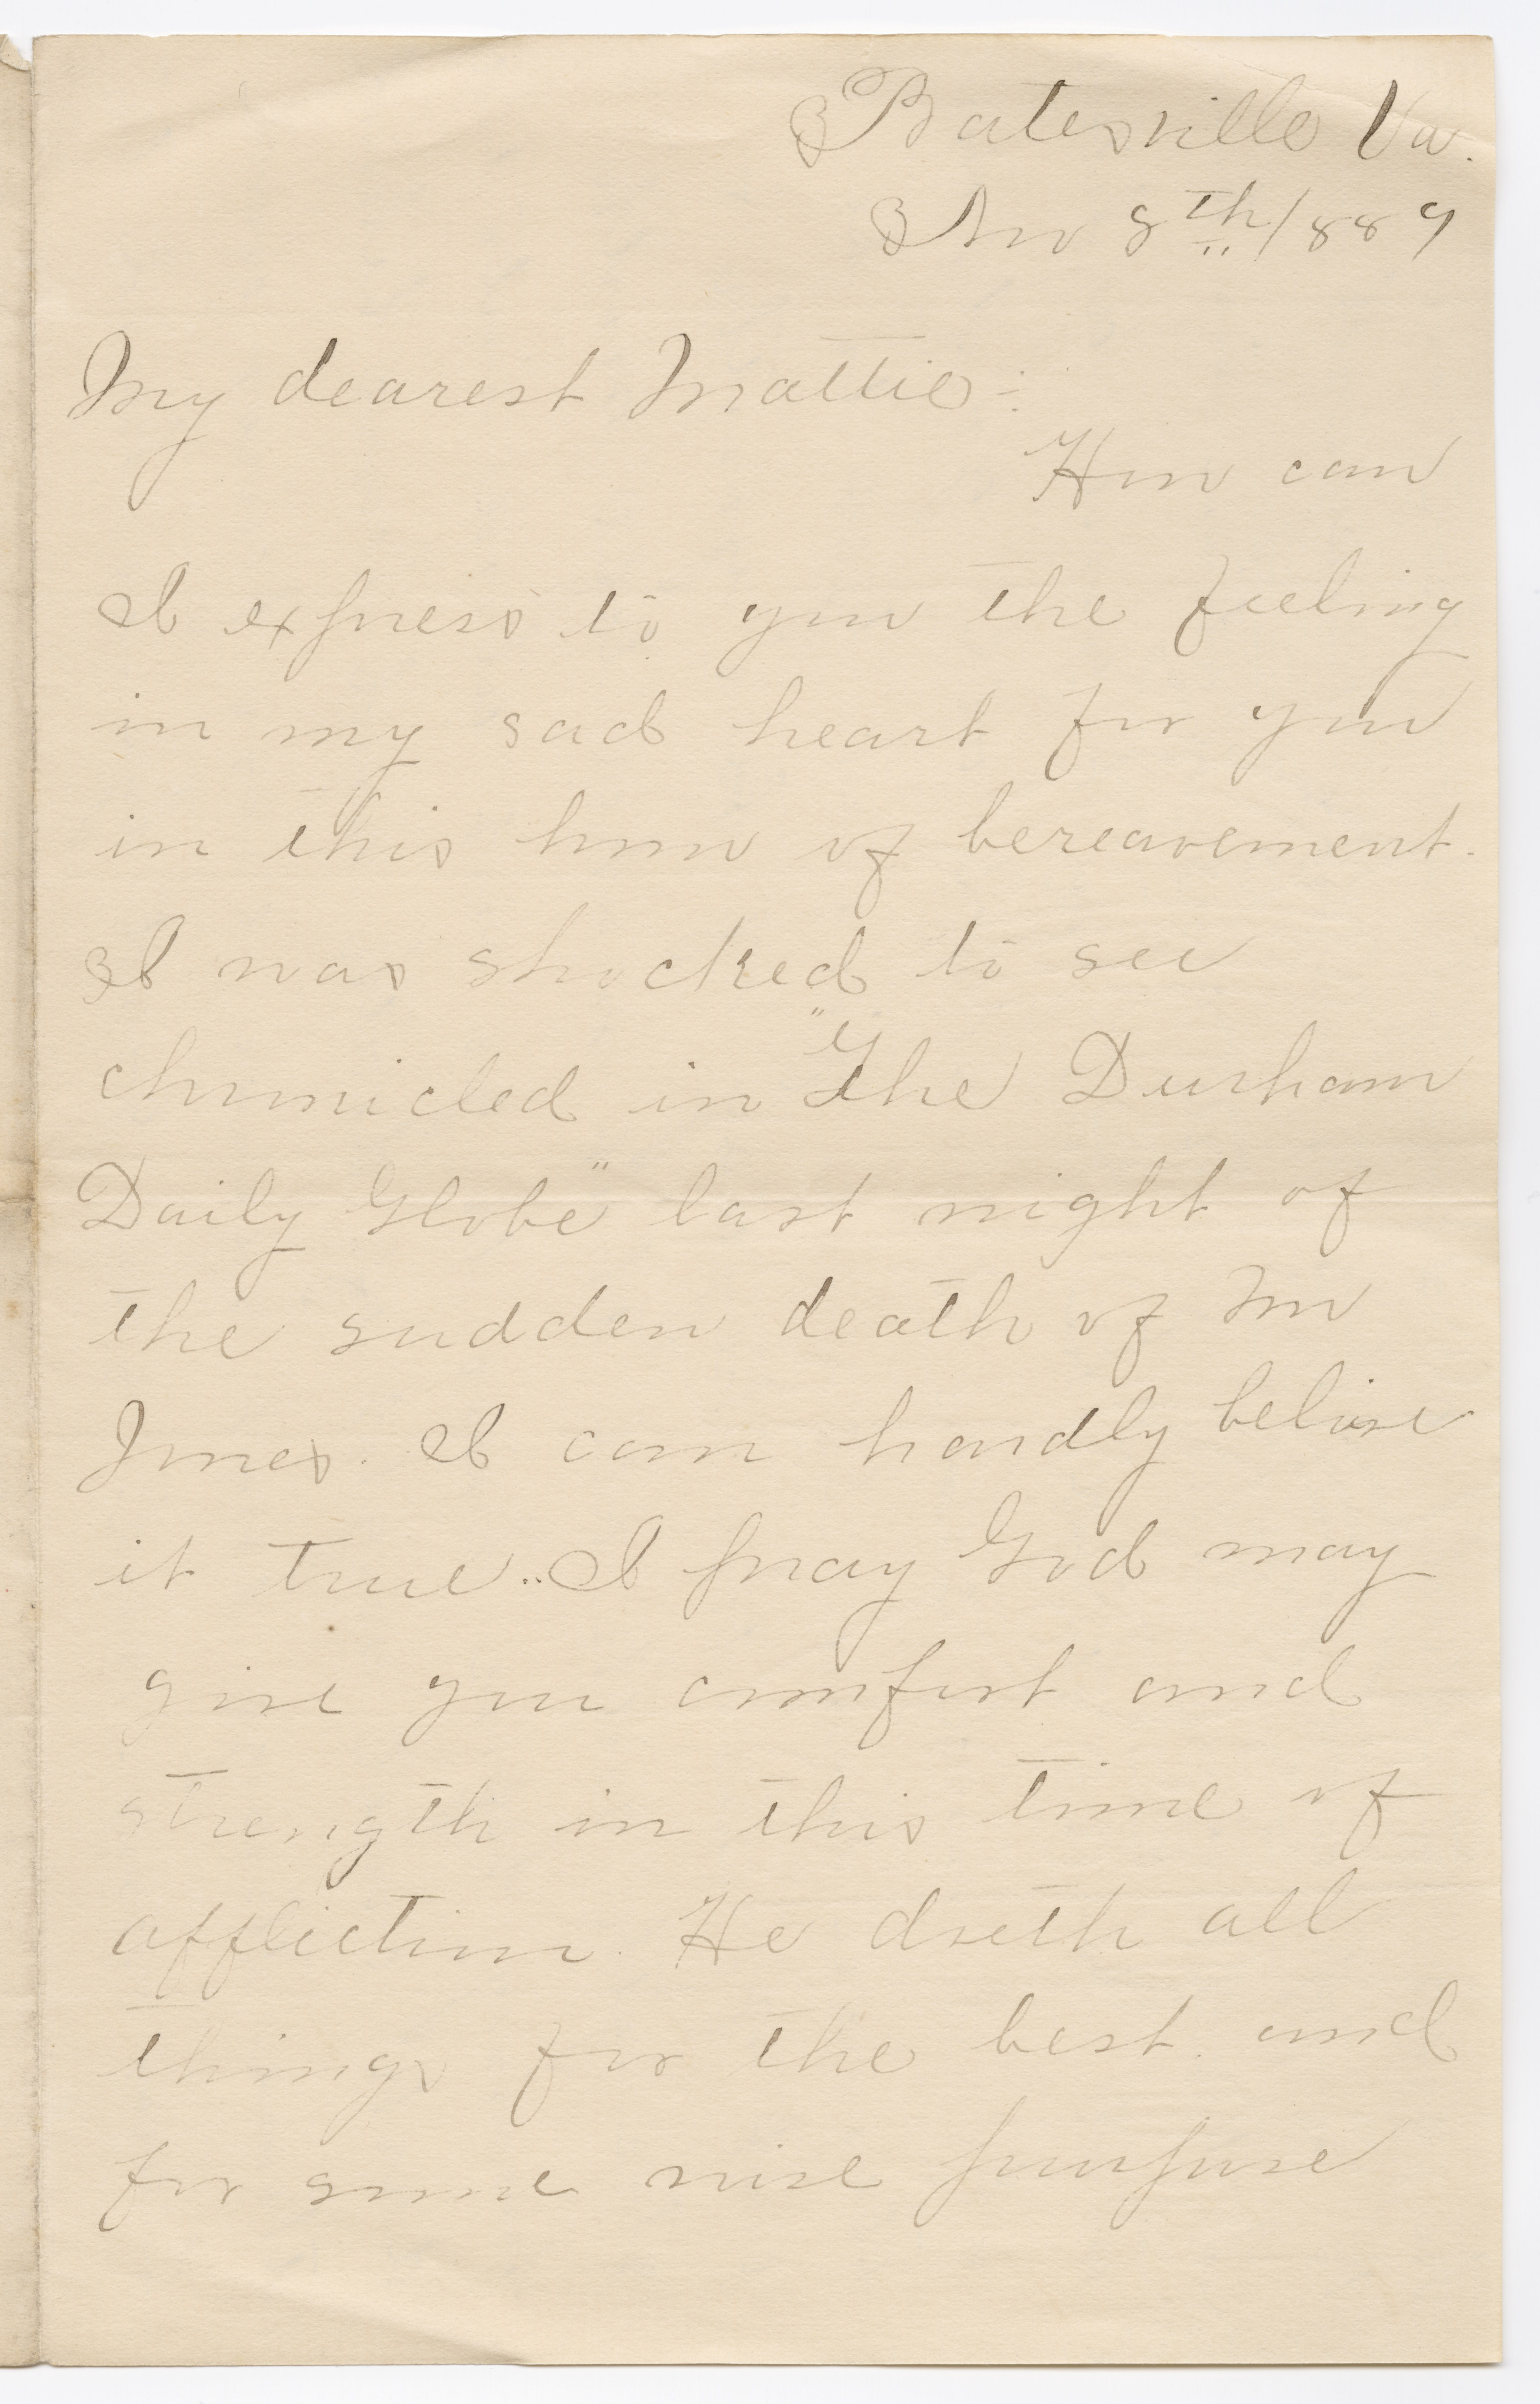 Batesville Va.
Nov 8th/1889
My dearest Mattie:
How can
I express to you the feeling
in my sad heart for you
in this hour of bereavement.
I was shocked to see
chronicled in "The Durham
Daily Globe" last night of
the sudden death of Mr
Jones. I can hardly belive
it true.. I pray God may
give you comfort and
strength in this time of
affliction. He doeth all
things for the best. and
for some wise purpose